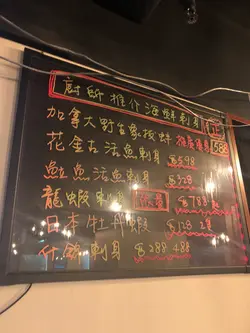 廚師推介海鮮刺身
加拿大野生象拔蚌 $588
花金古活魚刺身 $598
魚刺身 $328
龍蝦刺身 $788
日本牡丹蝦 $128 2隻
什錦刺身 $288 488